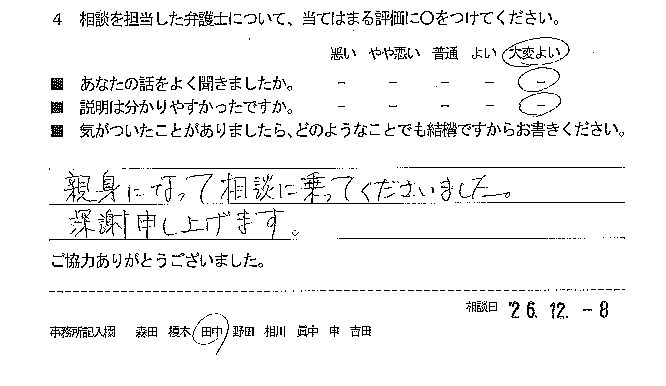 4 相談を担当した弁護士について、当てはまる評価に〇をつけてください。
悪い やや悪い 普通 よい 大変よい
■ あなたの話をよく聞きましたか。 - - - - -
■ 説明は分かりやすかったですか。 - - - - -
■ 気がついたことがありましたら、どのようなことでも結構ですからお書きください。
親身になって相談に乗ってくださいました。
深謝申し上げます。
ご協力ありがとうございました。
相談日 '26.12.-8
事務所記入欄 森田 榎本 田中 野田 相川 眞中 申 吉田